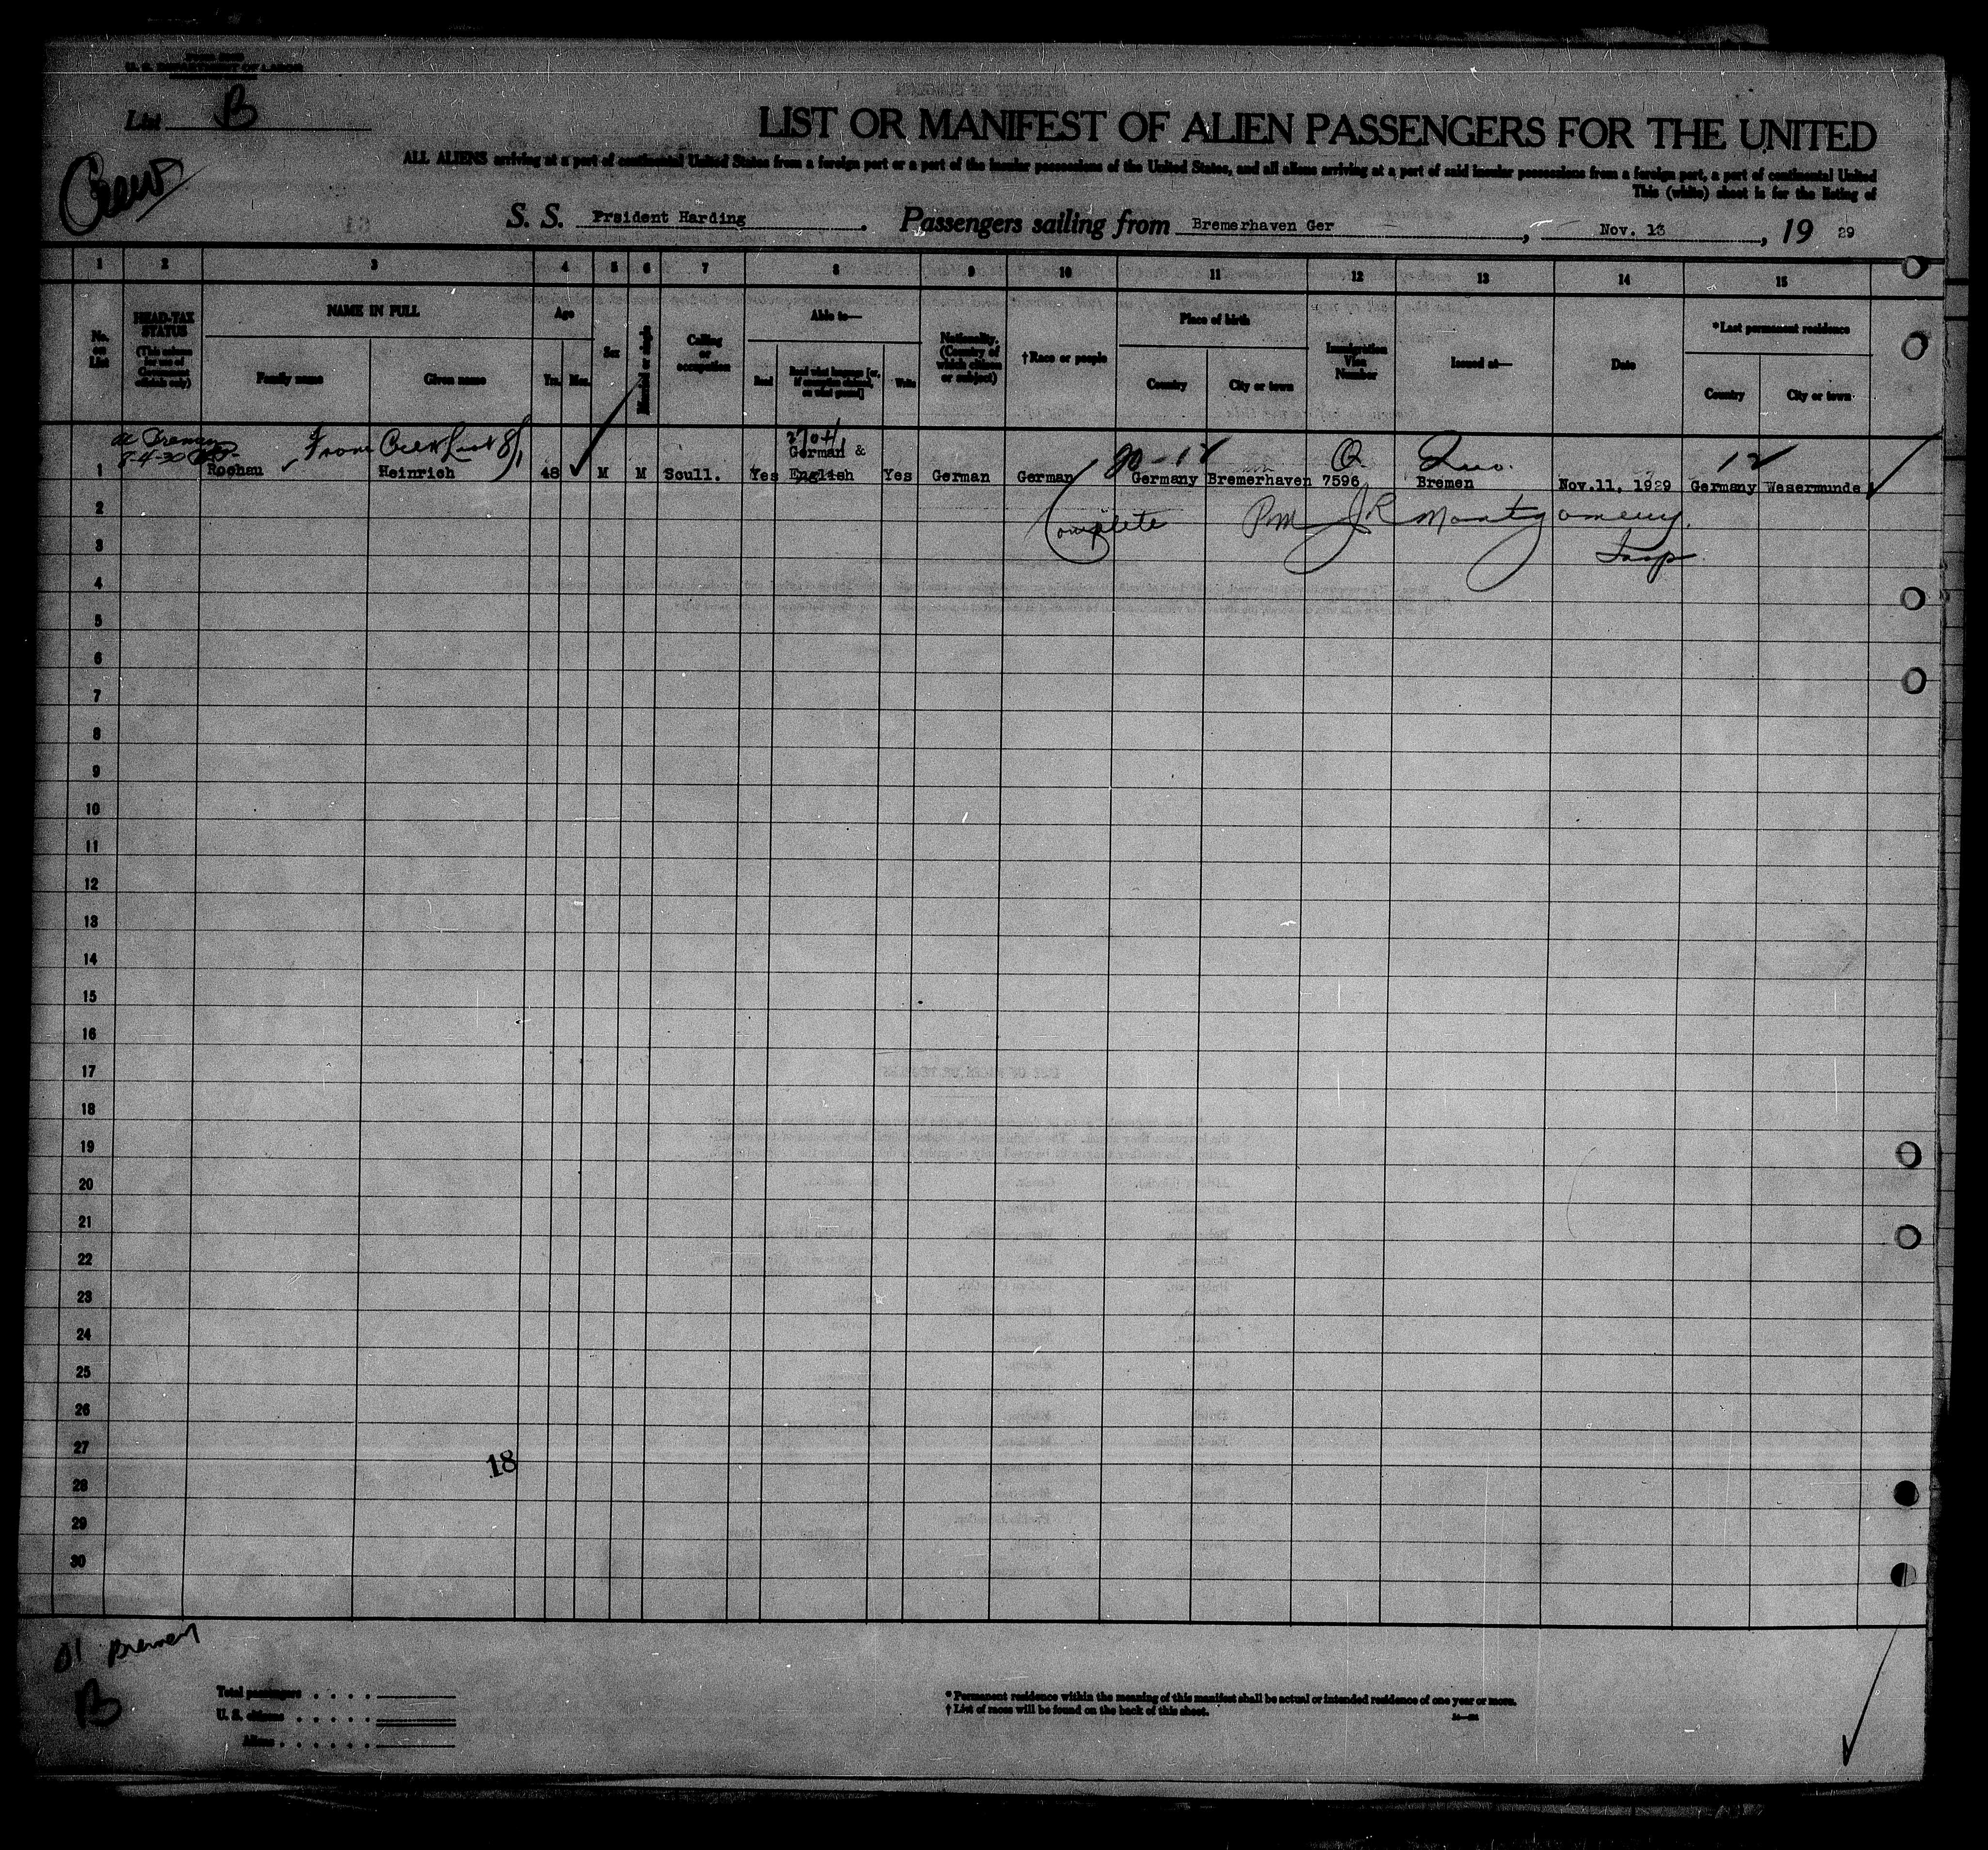 U. S. DEPARTMENT OF LABOR
List B
Crew
LIST OR MANIFEST OF ALIEN PASSENGERS FOR THE UNITED
ALL ALIENS arriving at a port of continental United States from a foreign port or a port of the insular possessions of the United States, and all aliens arriving at a port of said insular possessions from a foreign port, a port of continental United
This (white) sheet is for the listing of
S. S. Prsident Harding. Passengers sailing from Bremerhaven Ger, Nov. 13, 19 29
1 2 3 4 5 6 7 8 9 10 11 12 13 14 15
No. on List
HEAD-TAX STATUS (This column for use of Government officials only)
NAME IN FULL
Family name
Given name
Age
Yrs. Mos.
Sex
Married or single
Calling or occupation
Able to—
Read
Read what language [or, if exemption claimed, on what ground]
Write
Nationality. (Country of which citizen or subject)
†Race or people
Place of birth
Country
City or town
Immigration Visa Number
Issued at—
Date
*Last permanent residence
Country
City or town
8-4-30
From Crew List 8/1
1 Rochau Heinrich 48 M M Scull. Yes German & English Yes German German Germany Bremerhaven 7596 Bremen Nov.11, 1929 Germany Wesermunde
Q Quo. 12
2 Complete Pm J R Montgomery.
3 Insp
4
5
6
7
8
9
10
11
12
13
14
15
16
17
18
19
20
21
22
23
24
25
26
27
18
28
29
30
Bremen
B
Total passengers
U. S. citizens
Aliens
* Permanent residence within the meaning of this manifest shall be actual or intended residence of one year or more.
† List of races will be found on the back of this sheet.